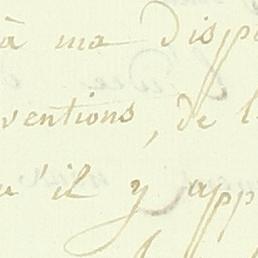 à ma disp
ventions, de l
u'il y app